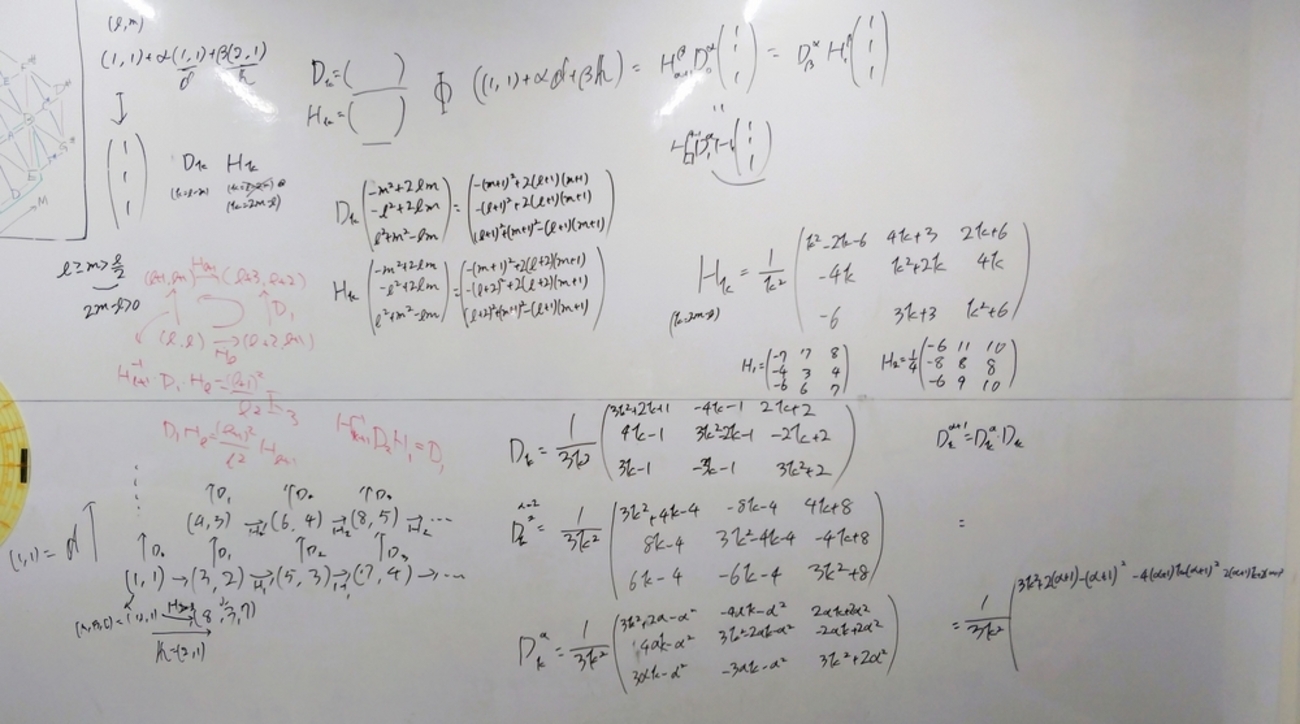 (l,m)
(1,1)+α(1,1)+β(2,1)
d h
(1 1 1)
D_k H_k
(k=l-m)
(k=2m-l)
l≥m>l/2
2m-l>0
M
D_k=( )
H_k=( )
Φ((1,1)+αd+βh) = H^β_{α+1} D^α_0 (1 1 1) = D^α_β H^β_1 (1 1 1)
D_k (-m²+2lm
-l²+2lm
l²+m²-lm) = (-(m+1)²+2(l+1)(m+1)
-(l+1)²+2(l+1)(m+1)
(l+1)²+(m+1)²-(l+1)(m+1))
H_k (-m²+2lm
-l²+2lm
l²+m²-lm) = (-(m+1)²+2(l+2)(m+1)
-(l+2)²+2(l+2)(m+1)
(l+2)²+(m+1)²-(l+1)(m+1))
H_k = 1/k² (k²-2k-6 4k+3 2k+6
-4k k²+2k 4k
-6 3k+3 k²+6)
(k=2m-l)
H₁=(-7 7 8
-4 3 4
-6 6 7)
H₂=1/4(-6 11 10
-8 8 8
-6 9 10)
(l+1,l+1) → (l+3,l+2)
↑ D₁
(l,l) → (l+2,l+1)
H_l
H⁻¹_{l+1}·D₁·H_l=(l+1)²/l² I₃
D₁H_l=(l+1)²/l² H_{l+1}
H⁻¹_{l+1}D₂H₁=D₁
D_k = 1/3k² (3k²+2k+1 -4k-1 2k+2
4k-1 3k²-2k-1 -2k+2
3k-1 -3k-1 3k²+2)
D_k^{α+1}=D_k^α·D_k
α=2
D_k² = 1/3k² (3k²+4k-4 -8k-4 4k+8
8k-4 3k²-4k-4 -4k+8
6k-4 -6k-4 3k²+8)
=
D_k^α = 1/3k² (3k²+2α-α² -4αk-α² 2αk+2α²
4αk-α² 3k²-2αk-α² -2αk+2α²
3αk-α² -3αk-α² 3k²+2α²)
= 1/3k² (3k²+2(α+1)-(α+1)² -4(α+1)k-(α+1)²
↑D₁ ↑D₀ ↑D₀
(4,3) →H₂ (6,4) →H₂ (8,5) →H₂ ⋯
(1,1)= d ↑
↑D₀ ↑D₁ ↑D₂ ↑D₃
(1,1) → (3,2) →H₁ (5,3) →H₁ (7,4) → ⋯
(A,B,C)=(1,1,1) → (8,5,7)
h=(2,1)